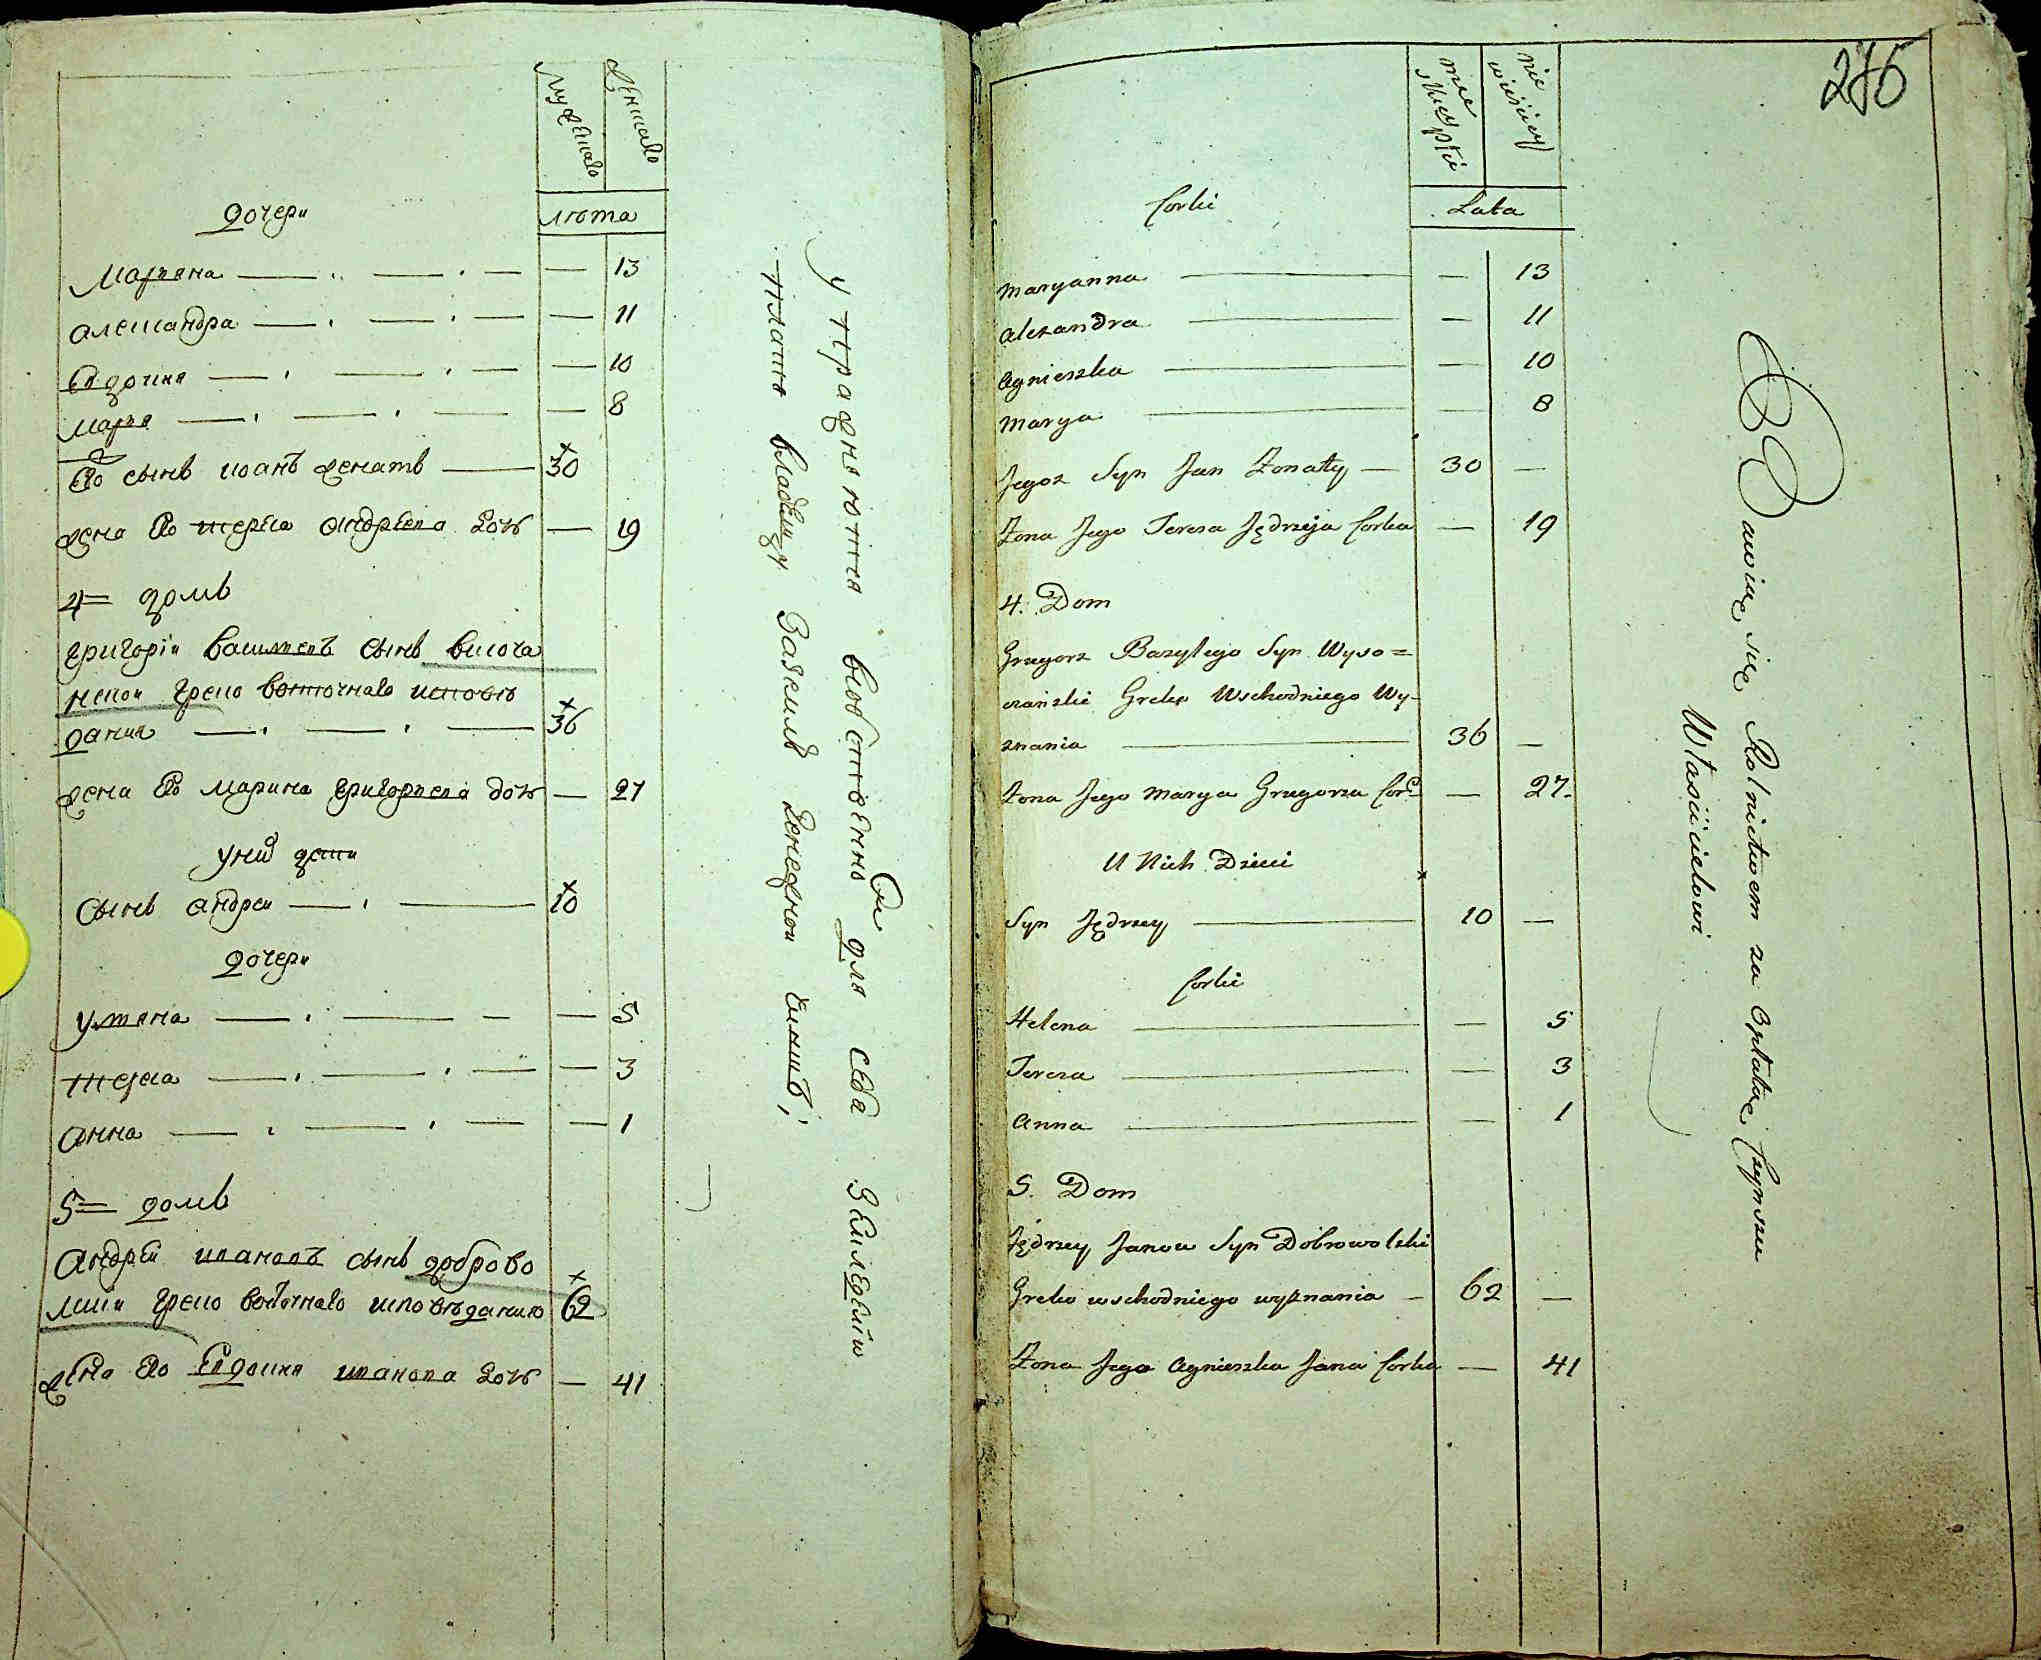 мужеска
женска
дочери
люта
Марьяна — — — — 13
александра — — — — 11
Евдокия — — — — 10
Марья — — — — 8
Его сынъ иоанъ женатъ — 30
жена Его тереса андреева дочь — 19
4= домъ
григорій василевъ сынъ височа
нский греко восточнаго исповѣ
дания — — — 36
жена Его Марина григорьева дочь — 27
у них дети
Сынъ андрей — — 10
дочери
Ульяна — — — — 5
тереса — — — — 3
анна — — — — 1
5= домъ
андрей ивановъ сынъ доброво
лский греко восточнаго исповѣданию 62
жена Его Евдокия иванова дочь — 41
упражняются собственно для себя Земледелием
платя владельцу за землю денежной чиншъ;
276
męskiey płci
niewieściey
Corki
Lata
Maryanna — — 13
Alexandra — — 11
Agnieszka — — 10
Marya — — 8
Jegoz Syn Jan Zonaty — 30 —
Zona Jego Teresa Jędrzeja Corka — 19
4. Dom
Grzegorz Bazylego Syn Wyso=
czański Greko Wschodniego Wy-
znania — 36 —
Zona Jego Marya Grzegorza Cor: — 27.
U Nich Dzieci
Syn Jędrzey — 10 —
Corki
Helena — — 5
Teresa — — 3
Anna — — 1
5. Dom
Jędrzey Janow Syn Dobrowolski
Greko wschodniego wyznania — 62 —
Zona Jego Agnieszka Jana Corka — 41
Bawią się Rolnictwem za Opłatąc Czynszu
Właścicielowi